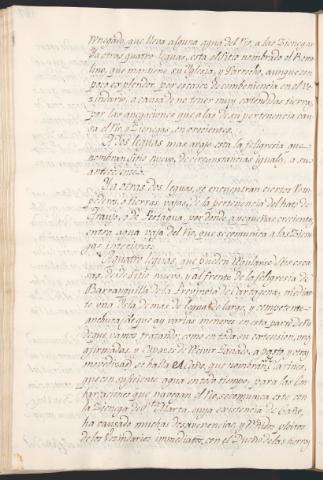 anegado, que lleva alguna agua del Rio, a las Cienegas
Ya otras quatro leguas, esta el Sitio nombrado el Remo-
lino, que mantiene su Iglesia, y Parrocho, aunque con
poco explendor, por escases de combeniencia en el Ve-
zindario, a causa de no tener muy extendidas tierras
por las anegaciones que a las de su pertenencia cau-
sa el Rio, y Cienegas, en crecientes.
A dos leguas mas abajo esta la feligresia que
nombran Sitio nuevo, de circunstancias iguales, a su
antecedente.
Ya otras dos leguas, se encuentran ciertos
o tierras vajas, de la pertenencia del hato de
por donde a pequeñas crecientes
entra agua vaja del Rio, que se comunica a las Ciene-
gas interiores.
A quatro leguas, que pueden
desde sitio nuevo, y al frente de la feligresia de
Barranquilla de la Provincia de Cartagena; median-
te una Isla de mas de legua de largo, y competente
anchura (de que ay varias menores en esta parte de Rio
de que vamos tratando; como en toda su extension, unas
afirmadas, y capaces de Mover Ganado, a pasto, y otras
movedisas) se halla el Caño, que nombran, Clarines,
que con suficiente agua en todo tiempo, para las Em-
barcaciones que navegan el Rio, se comunica este con
la Cienega de Sta. Marta, cuya existencia de Caño,
ha causado muchas desavenencias, y pleitos
de los Vezindarios immediatos, con el Dueño de las tierras